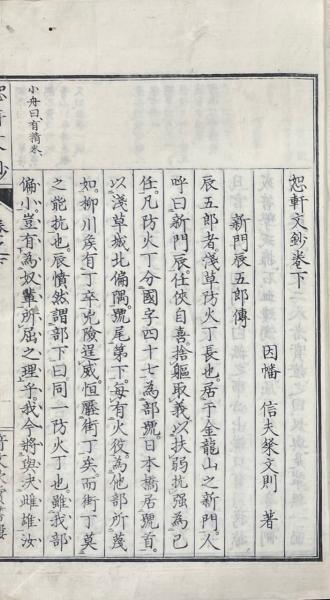 恕軒文鈔卷下
因幡 信夫粲文則 著
新門辰五郎傳
辰五郎者淺草防火丁長也居于金龍山之新門人
呼曰新門辰任俠自喜捨軀取義以扶弱抗强為己
任凡防火丁分國字四十七為部號日本橋居號首
以淺草城北偏隅號尾第下每有火役為他部所蔑
如柳川矦有丁卒兇險逞威恒壓街丁矣而街丁莫
之能抗也辰憤然謂部下曰同一防火丁也雖我部
偏小豈有為奴輩所屈之理乎我今將與決雌雄汝
小舟曰有精采